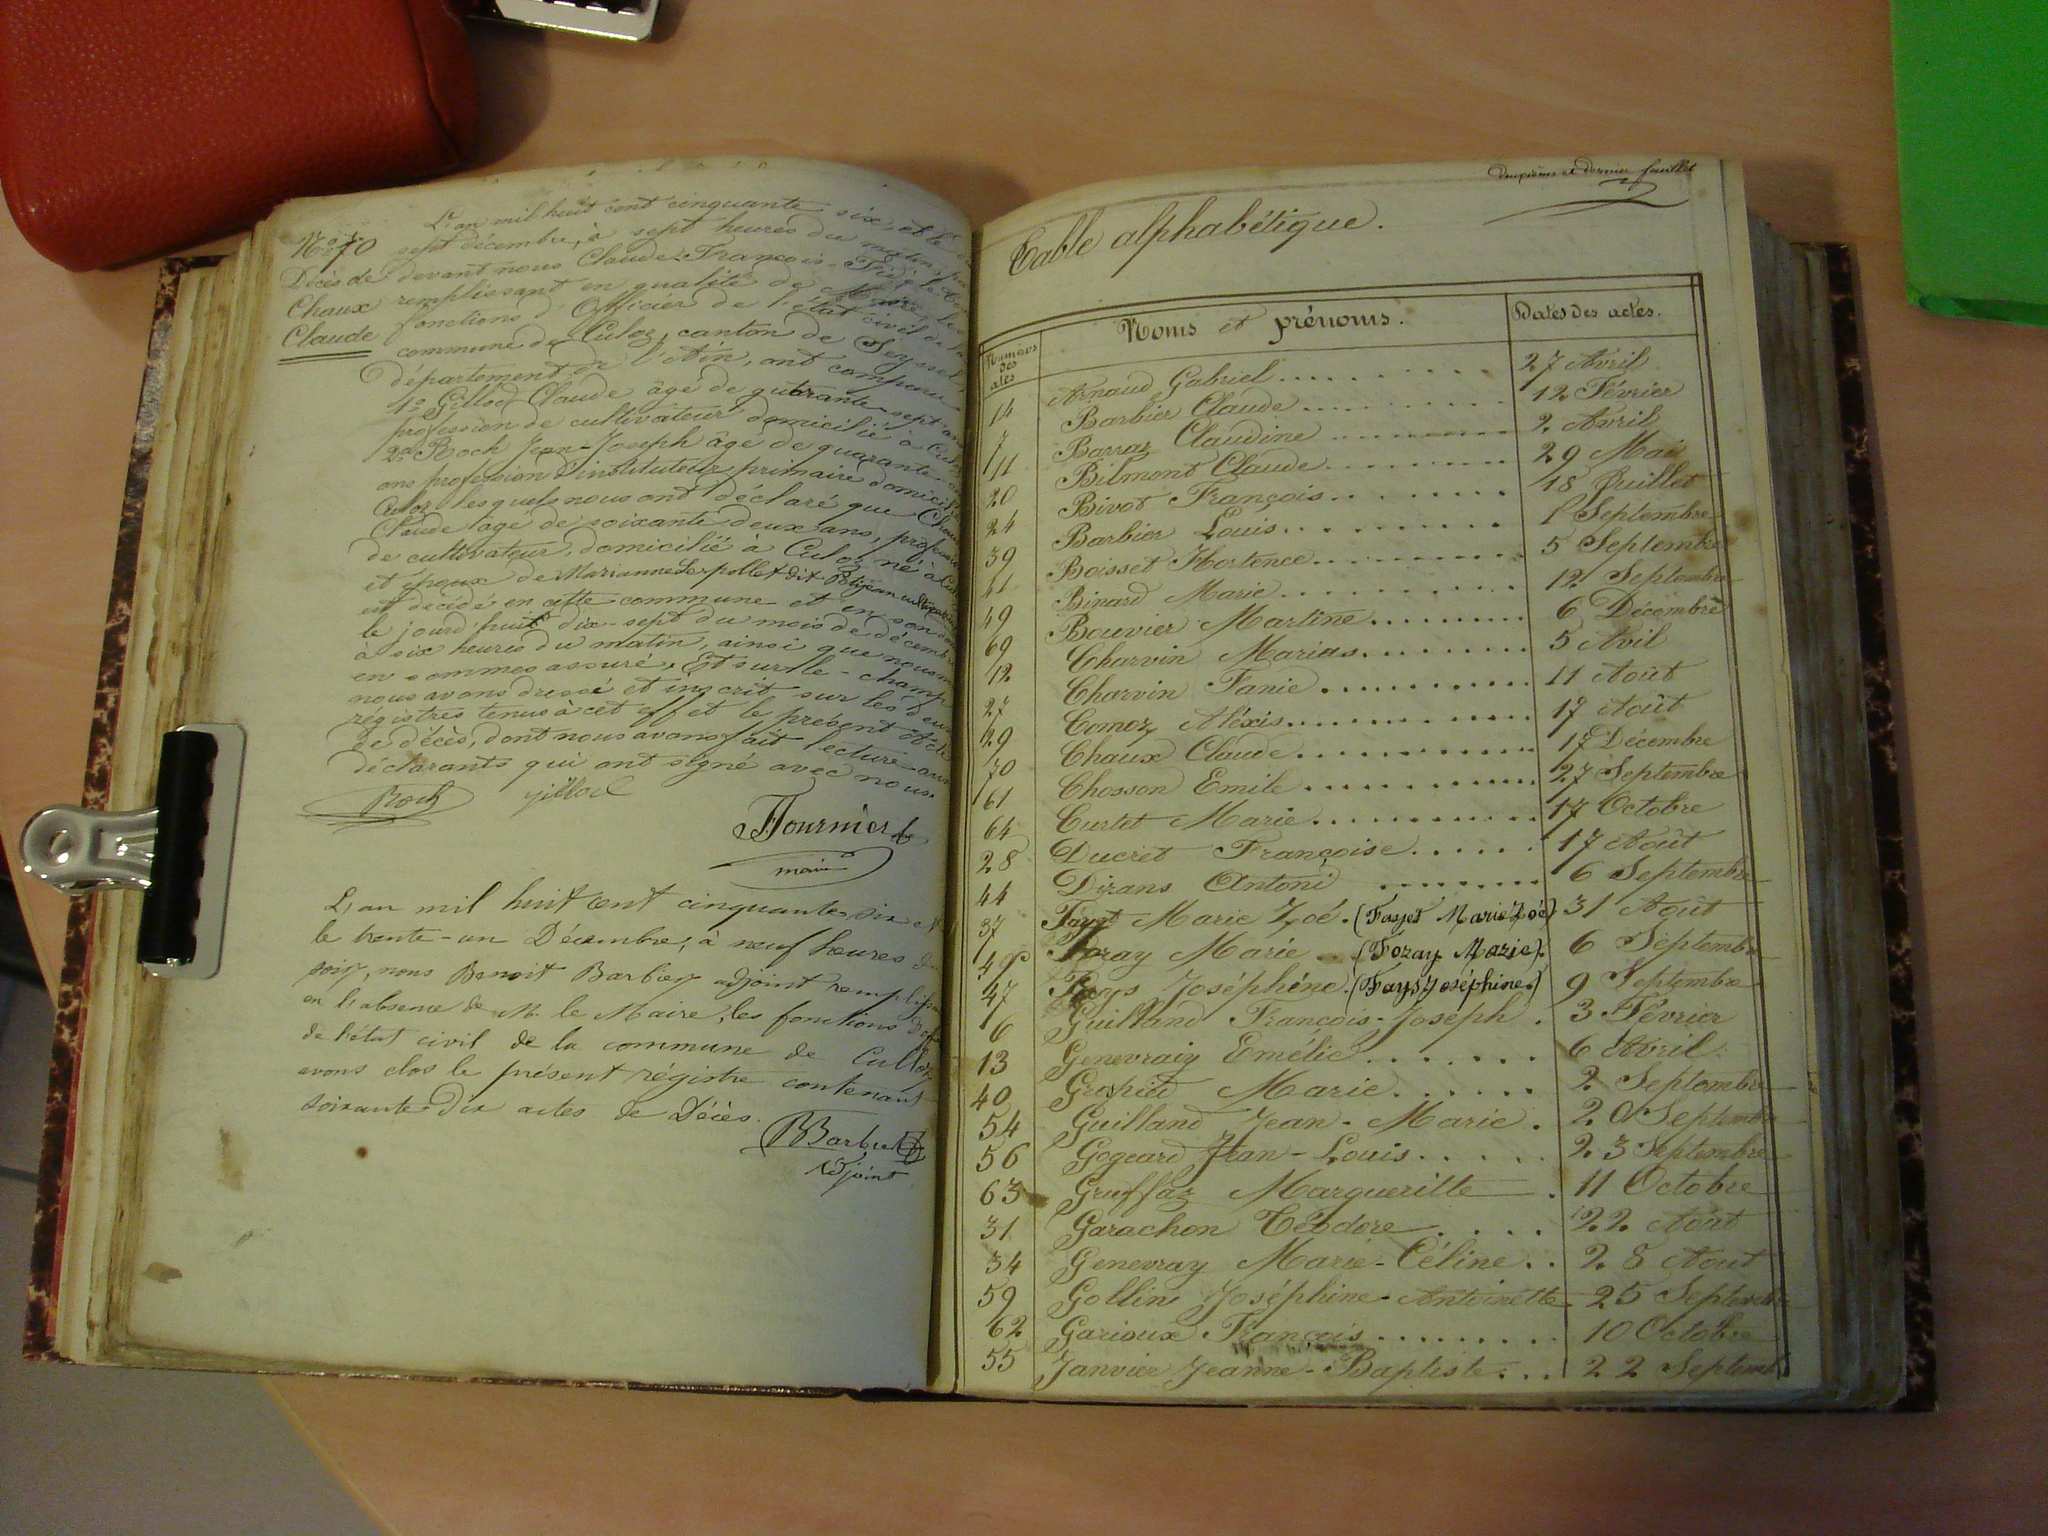 N° 70
Décès de
Chaux
Claude
L'an mil huit cent cinquante six, et le
sept décembre, à sept heures du matin, par
devant nous Claude-François-
remplissant en qualité de Maire les
fonctions d'Officier de l'état civil de la
commune de Culoz, canton de Seyssel
département de l'Ain, ont comparu
1° Gilloz Claude âgé de quarante-sept ans
profession de cultivateur domicilié à Culoz
2° Roch Jean-Joseph âgé de quarante
ans profession d'instituteur primaire domicilié
Culoz lesquels nous ont déclaré que Chaux
Claude âgé de soixante deux ans, profession
de cultivateur, domicilié à Culoz né à
et époux de Marianne dit Petitjean
est décédé en cette commune et en son
le jourd'huit dix-sept du mois de décembre
à six heures du matin, ainsi que nous nous
en sommes assuré, Et sur le-champ
nous avons dressé et inscrit sur les deux
registres tenus à cet effet le présent acte
de décès, dont nous avons fait lecture aux
déclarants qui ont signé avec nous.
Roch gilloz
Fournier
maire
L'an mil huit cent cinquante six et
le trente-un Décembre, à neuf heures du
soir, nous Benoit Barbier adjoint remplissant
en l'absence de M. le Maire, les fonctions
de l'état civil de la commune de Culloz
avons clos le présent régistre contenant
soixante-dix actes de Décès.
BBarbier
Adjoint
deuxième et dernier feuillet
Table alphabétique.
Numéros des actes Noms et prénoms. Dates des actes.
14 Arnaud Gabriel 27 Avril
7 Barbier Claude 12 Février
11 Barraz Claudine 2 Avril
20 Bilmont Claude 29 Mai
24 Bivot François 18 Juillet
39 Barbier Louis 1 Septembre
41 Boisset Hortence 5 Septembre
49 Binard Marie 12 Septembre
69 Bouvier Martine 6 Décembre
12 Charvin Marias 5 Avil
27 Charvin Fanie 11 Août
29 Comoz Aléxis 17 Août
70 Chaux Claude 17 Décembre
61 Chosson Emile 27 Septembre
64 Curtet Marie 17 Octobre
28 Ducret Françoise 17 Août
44 Dirans Antoni 6 Septembre
37 Fayet Marie Zoé. (Fayet Marie Zoé) 31 Août
Foray Marie (Foray Marie) 6 Septembre
47 Fays Joséphine. (Fays Joséphine) 9 Septembre
6 Guilland François-Joseph . 3 Février
13 Genevraiy Emélie 6 Avril
40 Marie 2 Septembre
54 Guilland Jean-Marie . 20 Septembre
56 Gogeard Jean-Louis 23 Septembre
63 Gruffaz Margueritte . 11 Octobre
31 Garachon Téodore 22 Août
34 Genevray Marie-Céline 28 Aout
59 Gollin Joséphine-Antoinette 25 Septembre
62 Garioux François 10 Octobre
55 Janvier Jeanne-Baptiste 22 Septemb